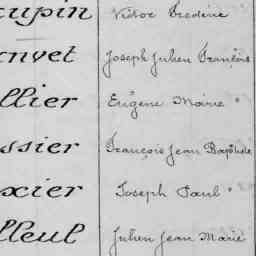 upin Victor Frédéric
nvet Joseph Julien François
llier Eugène Marie
ssier François Jean Baptiste
xier Joseph Paul
lleul Julien Jean Marie